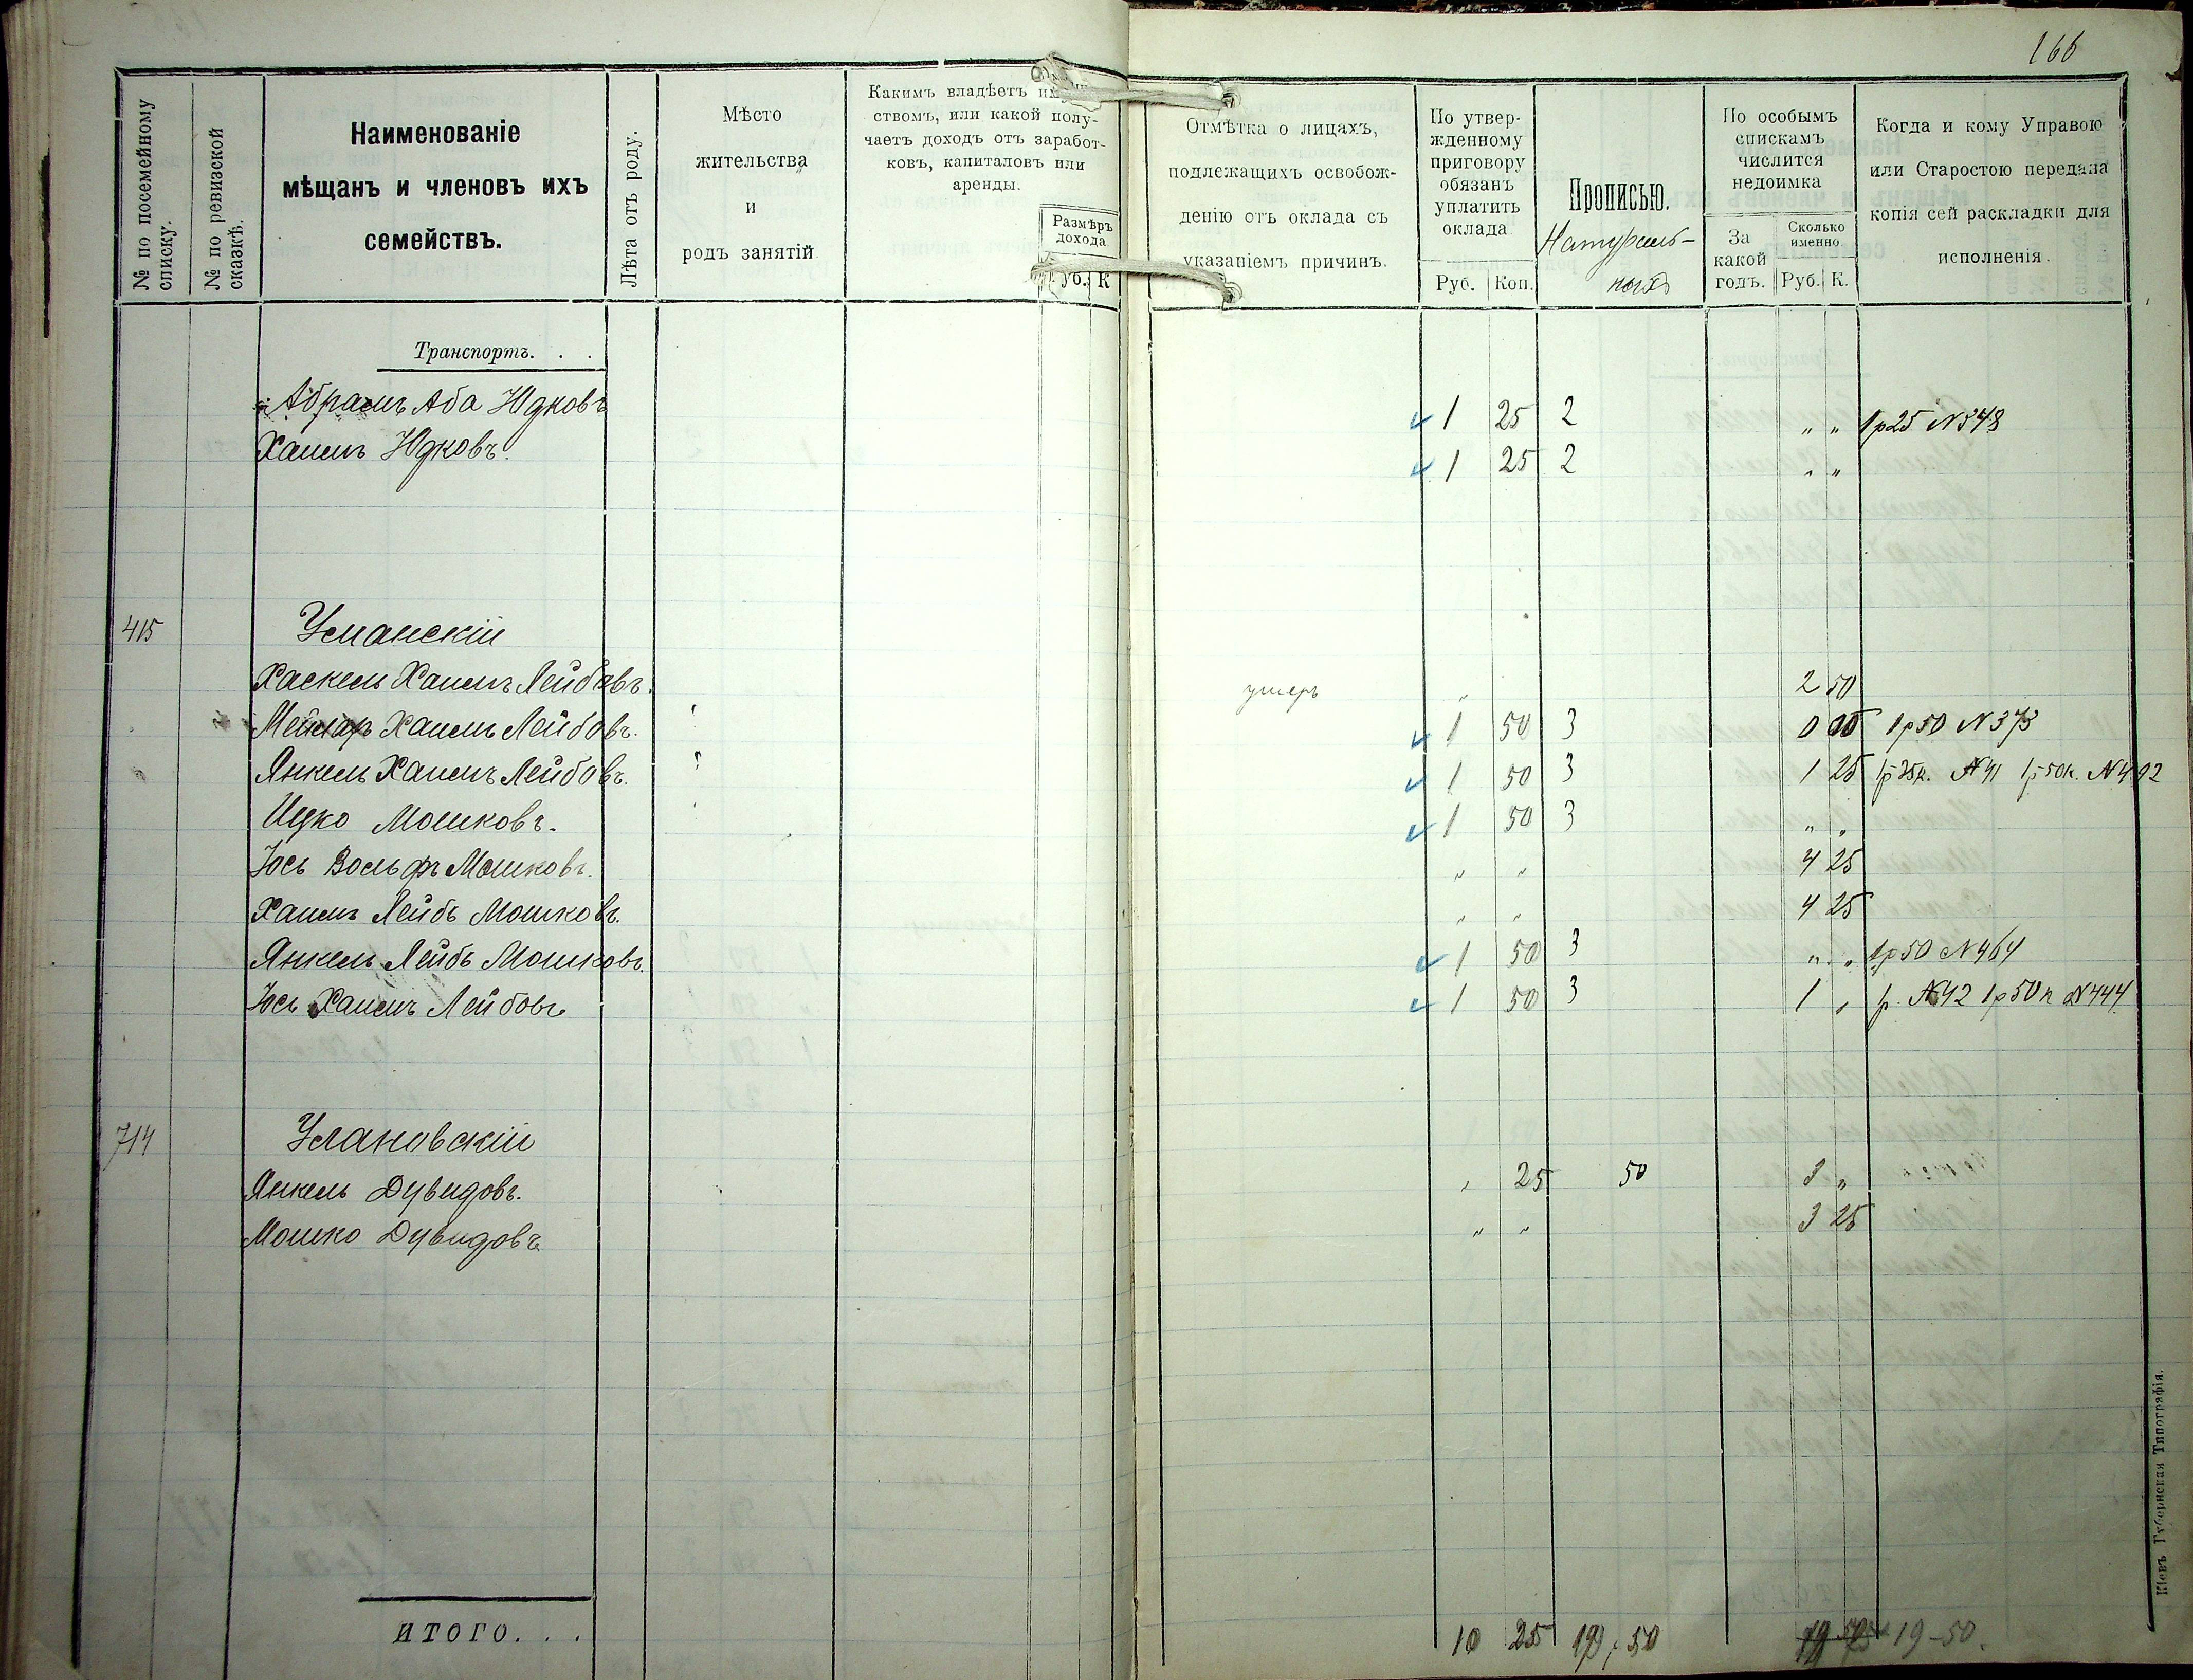 166
№ по посемейному списку.
№ по ревизской сказкѣ.
Наименованіе
мѣщанъ и членовъ ихъ
семействъ.
Лѣта отъ роду.
Мѣсто
жительства
и
родъ занятій
Какимъ владѣетъ
ствомъ, или какой полу-
чаетъ доходъ отъ заработ-
ковъ, капиталовъ или
аренды.
Размѣръ
дохода
Руб. К
Отмѣтка о лицахъ,
подлежащихъ освобож-
денію отъ оклада съ
указаніемъ причинъ.
По утвер-
жденному
приговору
обязанъ
уплатить
оклада
Руб. Коп.
Прописью.
Натураль-
ныхъ
По особымъ
спискамъ
числится
недоимка
За
какой
годъ.
Сколько
именно
Руб. К.
Когда и кому Управою
или Старостою передана
копія сей раскладки для
исполненія.
Транспортъ. . .
Абрамъ Аба Юдковъ 1 25 2 " " 1р25 N 548
Хаимъ Юдковъ. 1 25 2 " "
415 Уманскій
Хаскель Хаимъ Лейбовъ. умеръ " 2 50
Хаимъ Лейбовъ. 1 50 3 1р50 N 373
Янкель Хаимъ Лейбовъ. 1 50 3 1 25 N 41 1р50к. N 492
Ицко Мошковъ. 1 50 3 " "
Іось Вольфъ Мошковъ. " " 4 25
Хаимъ Лейбъ Мошковъ. " " 4 25
Янкель Лейбъ Мошковъ. 1 50 3 " " 1р50 N 464
Іось Хаимъ Лейбовъ 1 50 3 1 " 1р. N 42 1р50к N 444
714 Улановскій
Янкель Дувидовъ. " 25 50 3 "
Мошко Дувидовъ " " 3 25
ИТОГО. . . 10 25 19-50.
Кіевъ Губернская Типографія.